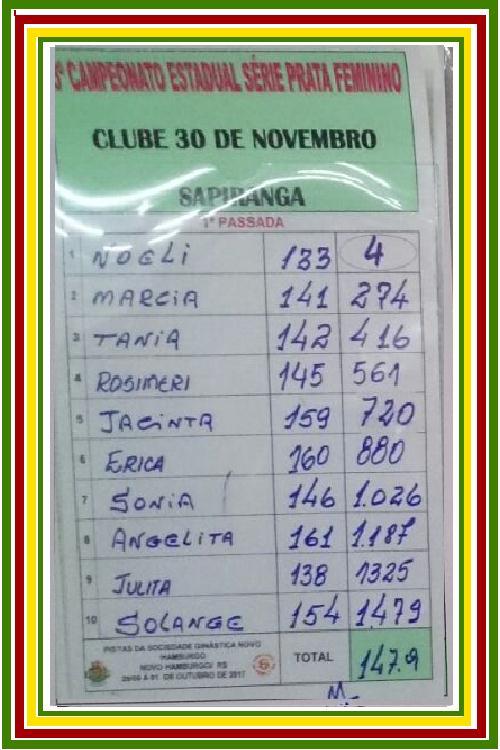 5º CAMPEONATO ESTADUAL SÉRIE PRATA FEMININO
CLUBE 30 DE NOVEMBRO
SAPIRANGA
1ª PASSADA
1 NOELI 133 4
2 MARCIA 141 274
3 TANIA 142 416
4 ROSIMERI 145 561
5 JACINTA 159 720
6 ERICA 160 880
7 SONIA 146 1.026
8 ANGELITA 161 1.187
9 JULITA 138 1325
10 SOLANGE 154 1479
PISTAS DA SOCIEDADE GINÁSTICA NOVO
HAMBURGO
NOVO HAMBURGO/ RS
DE OUTUBRO DE 2017
TOTAL 147.9
M